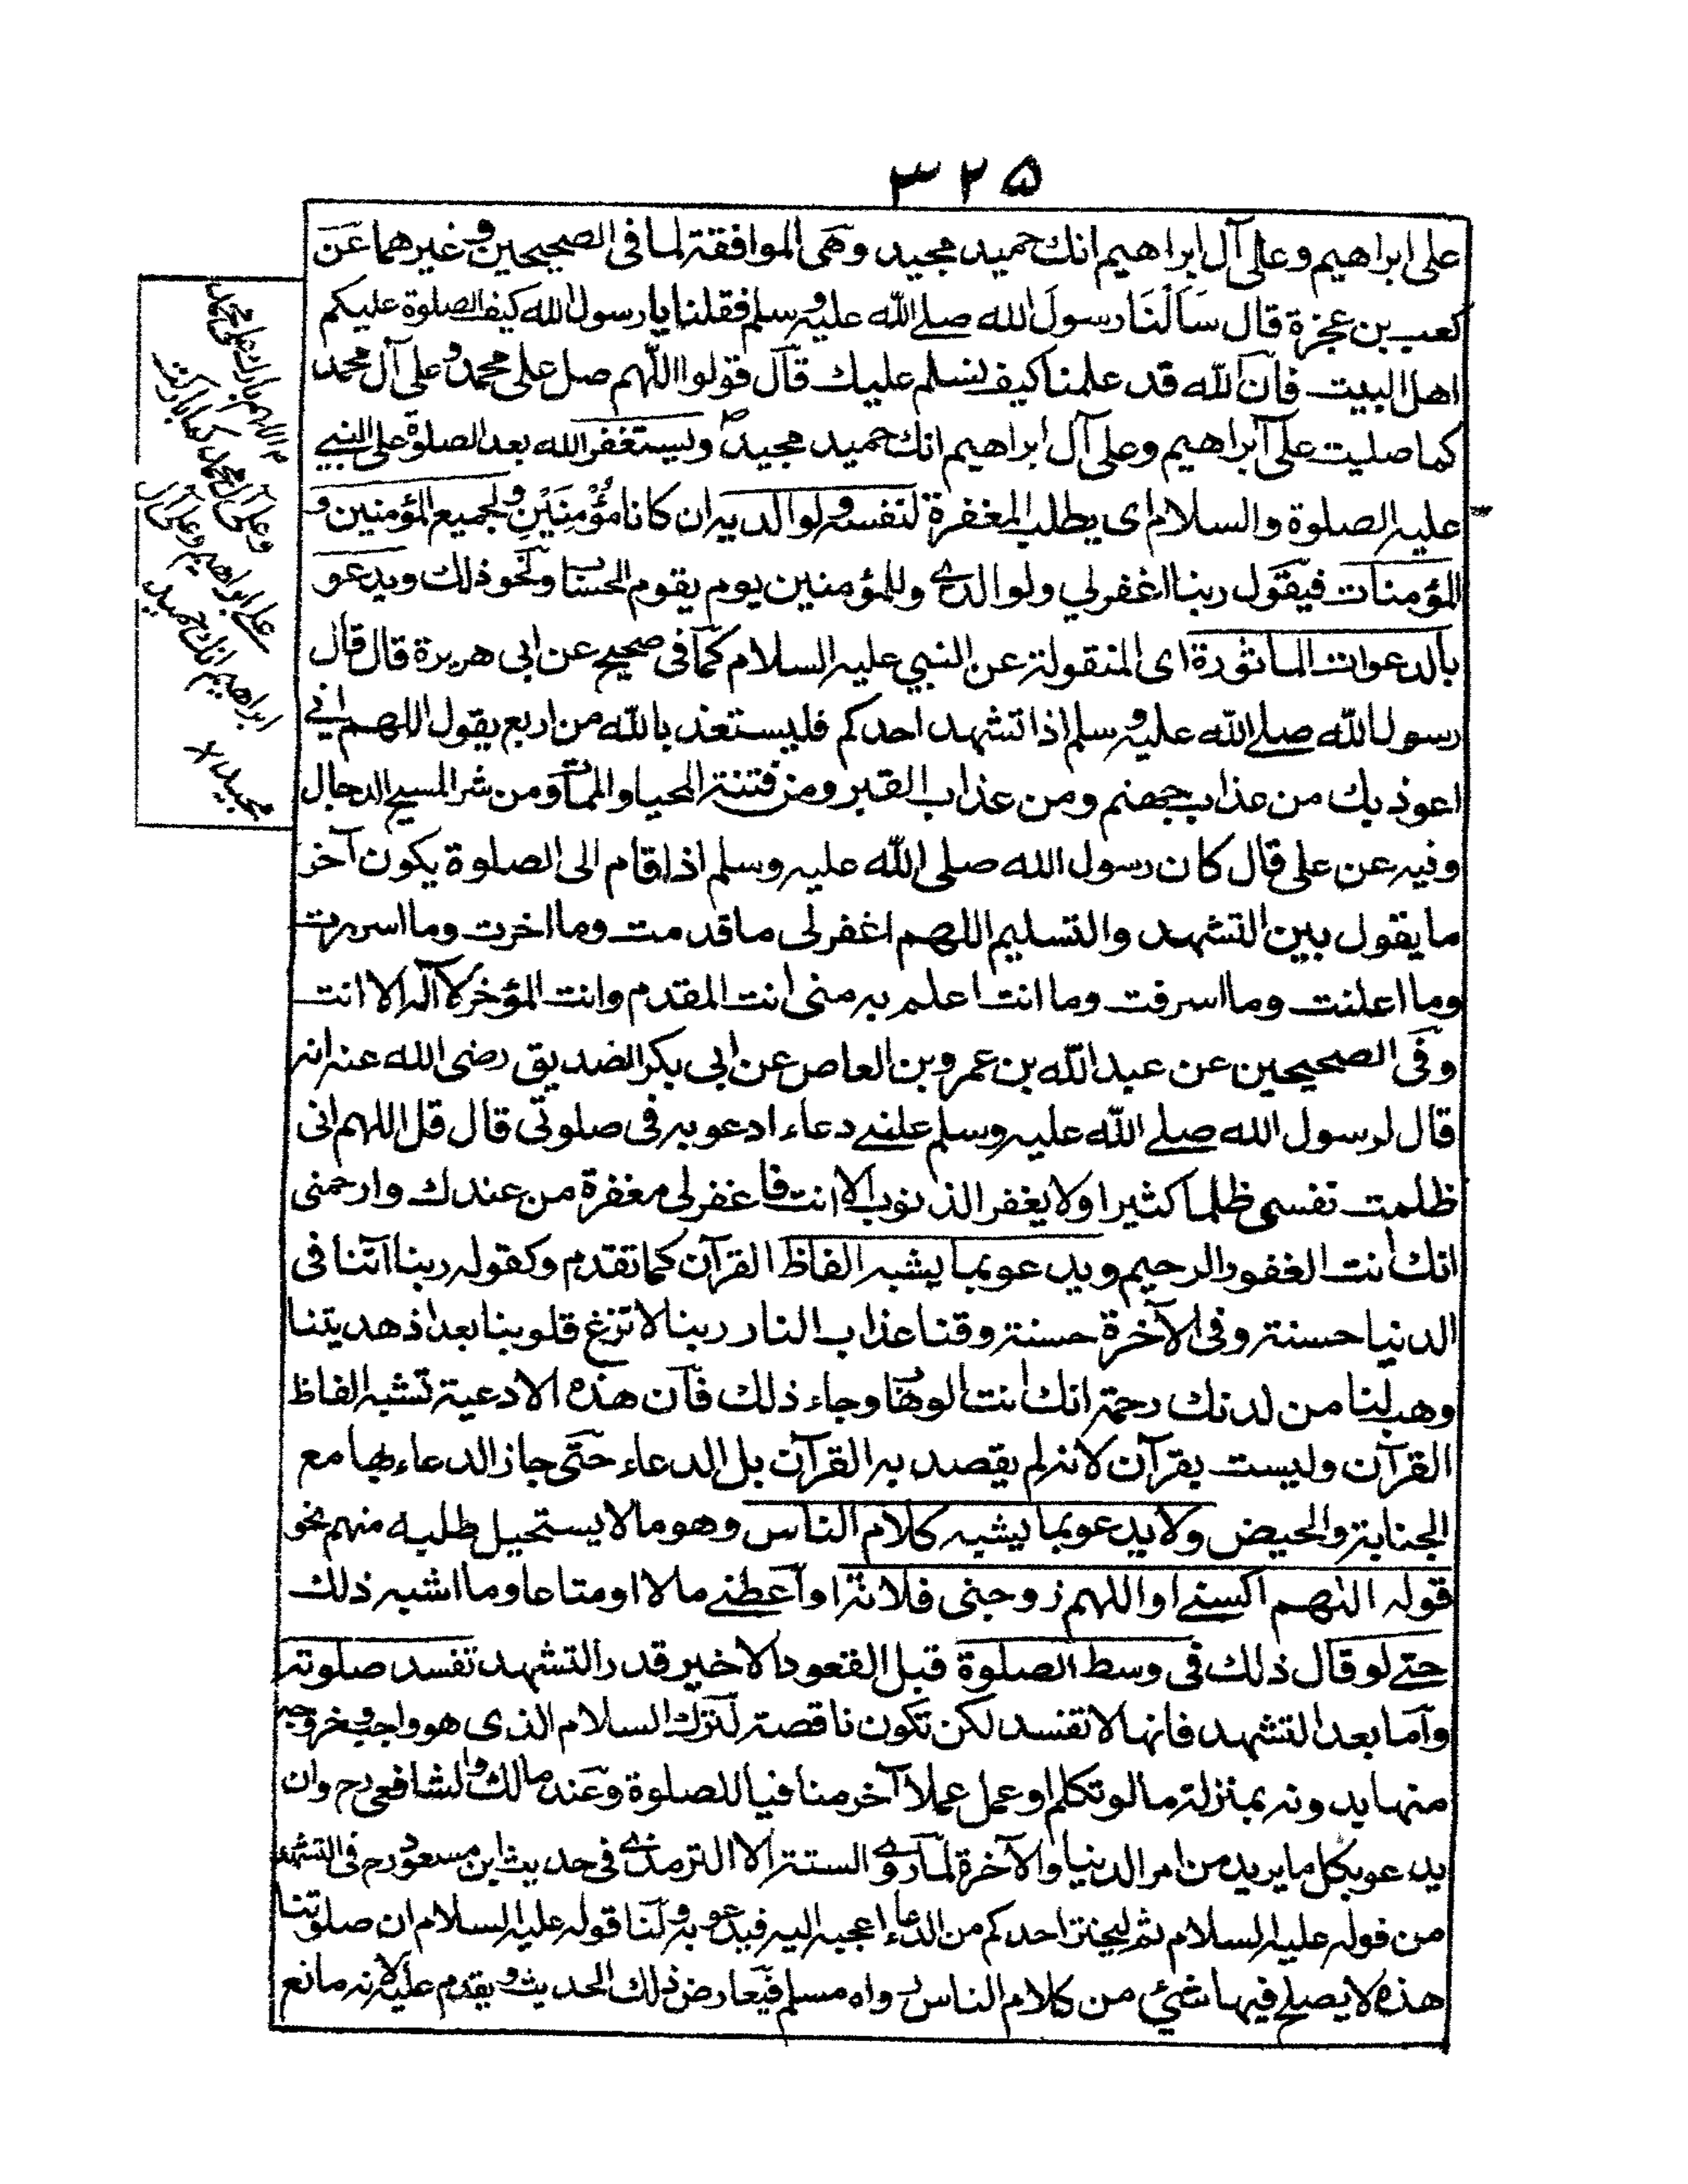 ۳۲۵
على ابراهيم وعلى آل ابراهيم انك حميد مجيد وهى الموافقة لما فى الصحيحين وغيرهما عن
كعب بن عجزة قال سَاَلْنَا رسولَ الله صلے الله عليه وسلم فقلنا يا رسول الله كيف الصلوة عليكم
اهل البيت فان الله قد علمنا كيف نسلم عليك قال قولوا اللهم صل على محمد وعلى آل محمد
كما صليت على ابراهيم وعلى آل ابراهيم انك حميد مجيد ويستغفر الله بعد الصلوة على النبے
عليه الصلوة والسلام اى يطلب المغفرة لنفسه ولوالديه ان كانا مؤْمِنَيْنِ ولجميع المؤمنين و
المؤمنات فيقول ربنا اغفرلي ولوالدے وللمؤمنين يوم يقوم الحساب ونحو ذلك ويدعو
بالدعوات الماثورة اى المنقولة عن النبي عليه السلام كما فى صحيح عن ابى هريرة قال قال
رسول الله صلے الله عليه وسلم اذا تشهد احدكم فليستعذ بالله من اربع يقول اللهم انے
اعوذ بك من عذاب جهنم ومن عذاب القبر ومن فتنة المحيا والممات ومن شر المسيح الدجال
وفيه عن على قال كان رسول الله صلى الله عليه وسلم اذا قام الى الصلوة يكون آخر
ما يقول بين التشهد والتسليم اللهم اغفرلى ما قدمت وما اخرت وما اسررت
وما اعلنت وما اسرفت وما انت اعلم به منى انت المقدم وانت المؤخر لا آله الا انت
وفى الصحيحين عن عبد الله بن عمرو بن العاص عن ابى بكر الصديق رضى الله عنه انه
قال لرسول الله صلے الله عليه وسلم علمنے دعاء ادعو به فى صلوتى قال قل اللهم انى
ظلمت نفسى ظلما كثيرا ولا يغفر الذنوب الا انت فاغفرلى مغفرة من عندك وارحمنى
انك انت الغفور الرحيم ويدعو بما يشبه الفاظ القرآن كما تقدم وكقوله ربنا آتنا فى
الدنيا حسنة وفى الآخرة حسنة وقنا عذاب النار ربنا لا تزغ قلوبنا بعد اذ هديتنا
وهب لنا من لدنك رحمة انك انت الوهاب وجاء ذلك فان هذه الادعية تشبه الفاظ
القرآن وليست بقرآن لانه لم يقصد به القرآن بل الدعاء حتى جاز الدعاء بها مع
الجنابة والحيض ولا يدعو بما يشبه كلام الناس وهو ما لا يستحيل طلبه منهم نحو
قوله اللهم اكسنے او اللهم زوجنى فلانة او اعطنے مالا او متاعا وما اشبه ذلك
حتے لو قال ذلك فى وسط الصلوة قبل القعود الاخير قدر التشهد تفسد صلوته
واما بعد التشهد فانها لا تفسد لكن تكون ناقصة لترك السلام الذى هو واجب وخروجه
منها بدونه بمنزلة ما لو تكلم او عمل عملا آخر منافيا للصلوة وعند مالك والشافعى رح وان
يدعو بكل ما يريد من امر الدنيا والآخرة لما روے الستة الا الترمذے فى حديث ابن مسعود رح فى التشهد
من قوله عليه السلام ثم ليختر احدكم من الدعاء اعجبه اليه فيدعو به ولنا قوله عليه السلام ان صلوتنا
هذه لا يصلح فيها شئ من كلام الناس رواه مسلم فيعارض ذلك الحديث ويقدم عليه لانه مانع
اللهم بارك على محمد
وعلى آل محمد كما باركت
على ابراهيم وعلى آل
ابراهيم انك حميد
مجيد